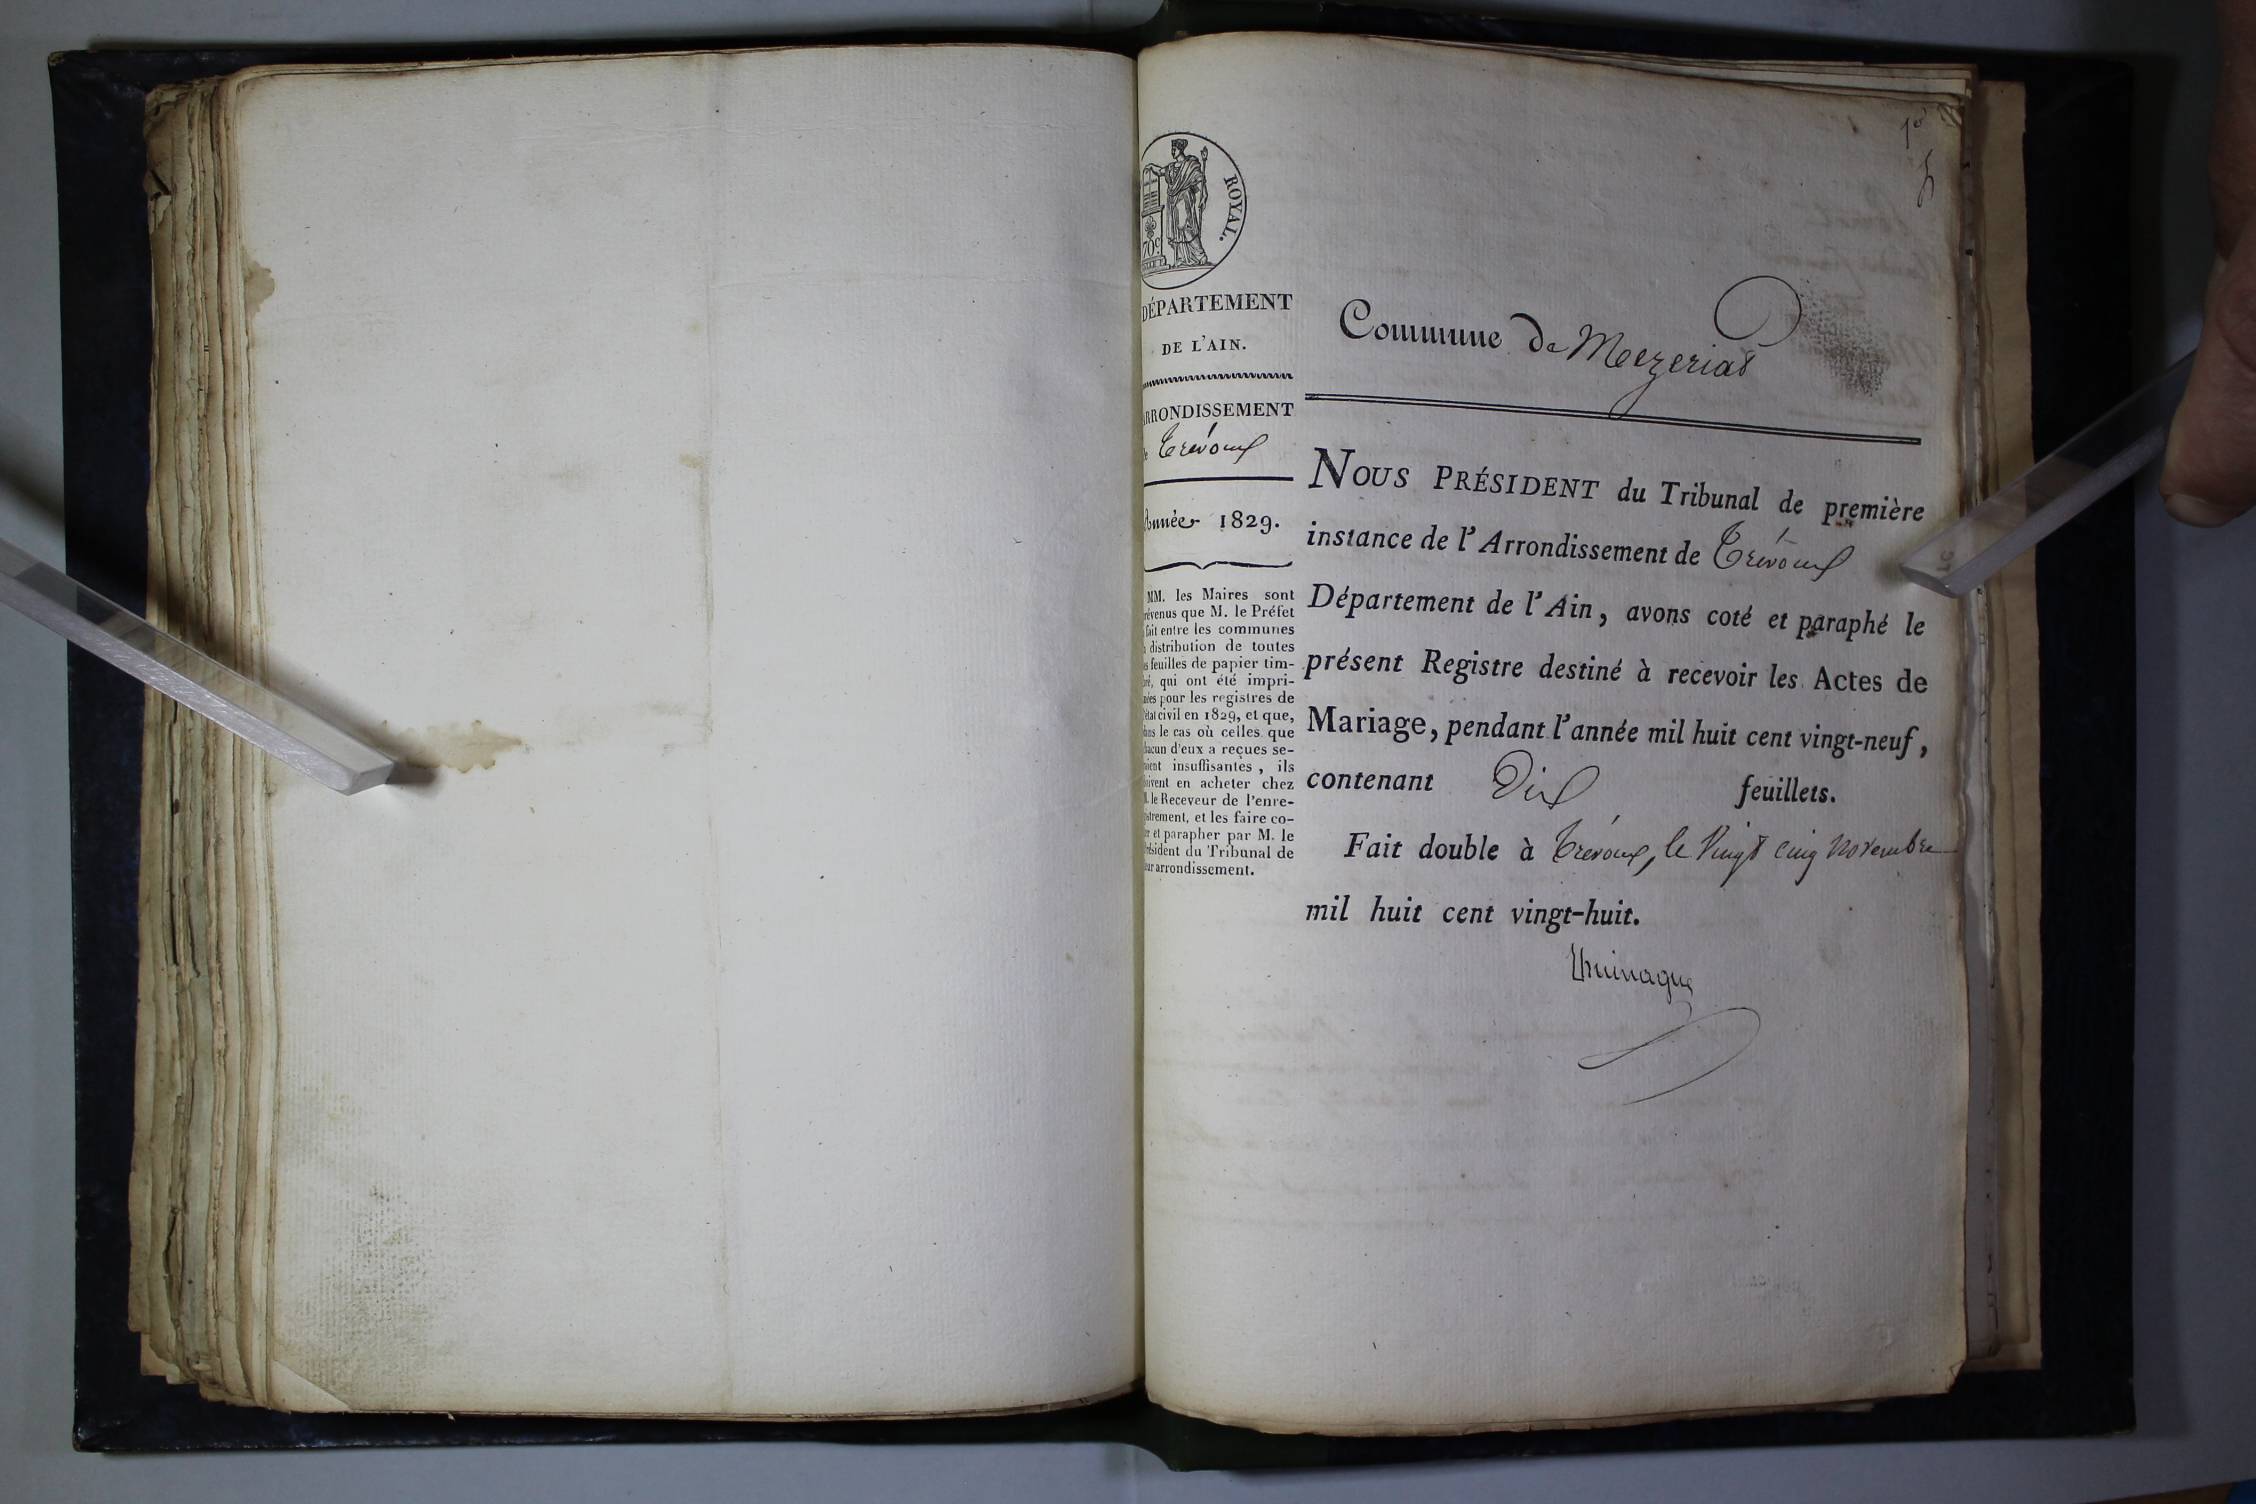 1er
ROYAL.
70c.
DÉPARTEMENT
DE L'AIN.
ARRONDISSEMENT
de Trévoux
Année 1829.
MM. les Maires sont
prévenus que M. le Préfet
fait entre les communes
la distribution de toutes
les feuilles de papier tim-
bré, qui ont été impri-
mées pour les registres de
l'état civil en 1829, et que,
dans le cas où celles que
chacun d'eux a reçues se-
raient insuffisantes, ils
doivent en acheter chez
M. le Receveur de l'enre-
gistrement, et les faire co-
ter et parapher par M. le
Président du Tribunal de
leur arrondissement.
Commune de Mezeriat
NOUS PRÉSIDENT du Tribunal de première
instance de l'Arrondissement de Trévoux
Département de l'Ain, avons coté et paraphé le
présent Registre destiné à recevoir les Actes de
Mariage, pendant l'année mil huit cent vingt-neuf,
contenant Dix feuillets.
Fait double à Trévoux, le Vingt cinq novembre
mil huit cent vingt-huit.